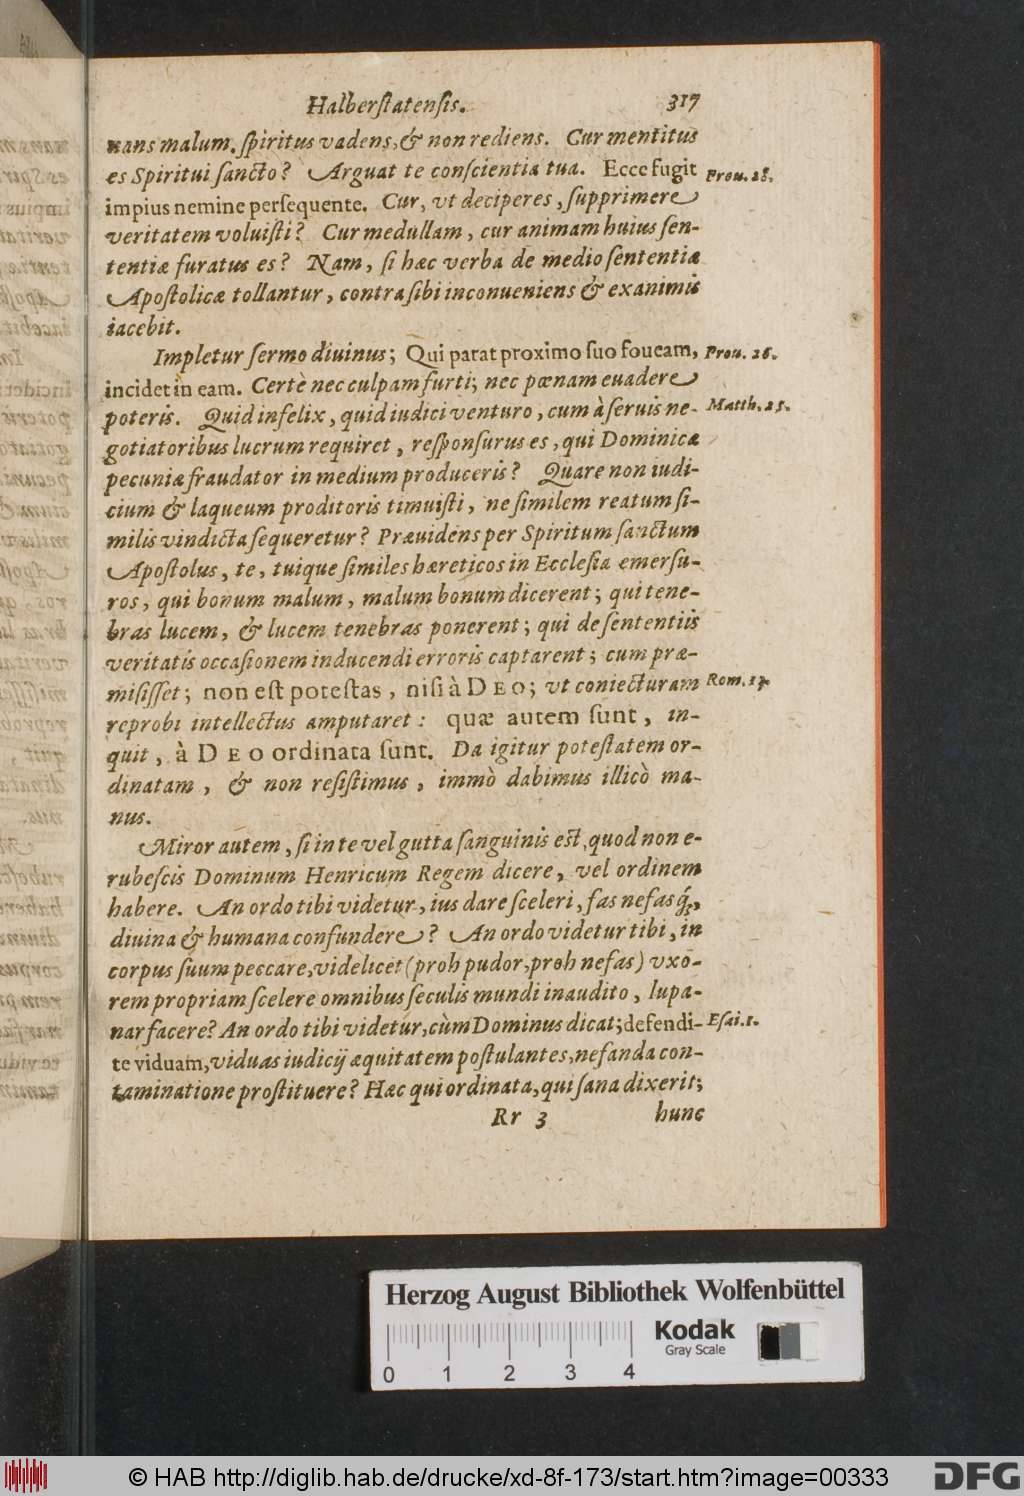 Halberſtatenſis. 317
nans malum. ſpiritus vadens, & non rediens. Cur mentitus
es Spiritui ſancto? Arguat te conſcientia tua. Ecce fugit Prou. 28.
impius nemine perſequente. Cur, vt deciperes, ſupprimere
veritatem voluiſti? Cur medullam, cur animam huius ſen-
tentiæ furatus es? Nam, ſi hæc verba de medio ſententia
Apoſtolicæ tollantur, contra ſibi inconueniens & exanimis
iacebit.
Impletur ſermo diuinus; Qui parat proximo ſuo foueam, Prou. 26.
incidet in eam. Certè nec culpam furti; nec pœnam euadere
poteris. Quid infelix, quid iudici venturo, cum à ſeruis ne- Matth. 25.
gotiatoribus lucrum requiret, reſponſurus es, qui Dominicæ
pecuniæ fraudator in medium produceris? Quare non iudi-
cium & laqueum proditoris timuiſti, ne ſimilem reatum ſi-
milis vindicta ſequeretur? Præuidens per Spiritum ſanctum
Apoſtolus, te, tuique ſimiles hæreticos in Eccleſia emerſu-
ros, qui bonum malum, malum bonum dicerent; qui tene-
bras lucem, & lucem tenebras ponerent; qui de ſententiis
veritatis occaſionem inducendi erroris captarent; cum præ-
miſiſſet; non eſt poteſtas, niſi à DEO; vt coniecturam Rom. 13.
reprobi intellectus amputaret: quæ autem ſunt, in-
quit, à DEO ordinata ſunt. Da igitur poteſtatem or-
dinatam, & non reſiſtimus, immò dabimus illicò ma-
nus.
Miror autem, ſi in te vel gutta ſanguinis eſt, quod non e-
rubeſcis Dominum Henricum Regem dicere, vel ordinem
habere. An ordo tibi videtur, ius dare ſceleri, fas nefasq́;,
diuina & humana confundere? An ordo videtur tibi, in
corpus ſuum peccare, videlicet (proh pudor, proh nefas) vxo-
rem propriam ſcelere omnibus ſeculis mundi inaudito, lupa-
nar facere? An ordo tibi videtur, cùm Dominus dicat; defendi- Eſai. 1.
te viduam, viduas iudicij æquitatem poſtulantes, nefanda con-
taminatione proſtituere? Hæc qui ordinata, qui ſana dixerit;
Rr 3 hunc
Herzog August Bibliothek Wolfenbüttel
Kodak
Gray Scale
0 1 2 3 4
© HAB http://diglib.hab.de/drucke/xd-8f-173/start.htm?image=00333
DFG